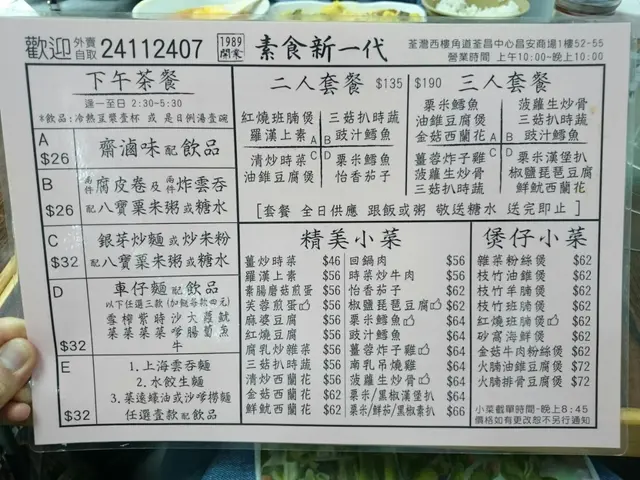 歡迎 外賣自取 24112407 1989開業 素食新一代
荃灣西樓角道荃昌中心昌安商場1樓52-55
營業時間 上午10:00-晚上10:00
下午茶餐
週一至日 2:30-5:30
*飲品:冷熱荳漿壹杯 或 是日例湯壹碗
A $26 齋滷味配飲品
B $26 兩件腐皮卷及兩件炸雲吞
配八寶粟米粥或糖水
C $32 銀芽炒麵或炒米粉
配八寶粟米粥或糖水
D $32 車仔麵配飲品
以下任選三款(加餸每款四元)
E $32 1.上海雲吞麵
2.水餃生麵
3.菜遠蠔油或沙嗲撈麵
任選壹款配飲品
二人套餐 $135
A 紅燒班腩煲
羅漢上素
B 三菇扒時蔬
豉汁鱈魚
C 清炒時菜
油雞豆腐煲
D 粟米鱈魚
怡香茄子
$190 三人套餐
A 粟米鱈魚
油雞豆腐煲
金菇西蘭花
B 菠蘿生炒骨
豉汁鱈魚
C 薑蓉炸子雞
菠蘿生炒骨
三菇扒時蔬
D 粟米漢堡扒
椒鹽琵琶豆腐
鮮魷西蘭花
[套餐 全日供應 跟飯或粥 敬送糖水 送完即止]
精美小菜
薑炒時菜 $46
羅漢上素 $56
素腸蘑菇煎蛋 $56
芙蓉煎蛋 $56
麻婆豆腐 $56
紅燒豆腐 $56
腐乳炒雜菜 $56
三菇扒時蔬 $56
清炒西蘭花 $56
金菇西蘭花 $62
鮮魷西蘭花 $62
回鍋肉 $56
時菜炒牛肉 $56
怡香茄子 $56
椒鹽琵琶豆腐 $62
粟米鱈魚 $64
豉汁鱈魚 $64
薑蓉炸子雞 $64
南乳吊燒雞 $64
菠蘿生炒骨 $64
粟米/黑椒漢堡扒 $64
粟米/鮮茄/黑椒素扒 $66
煲仔小菜
雜菜粉絲煲 $62
枝竹油雞煲 $62
枝竹羊腩煲 $62
枝竹班腩煲 $62
紅燒班腩煲 $62
砂窩海鮮煲 $62
金菇牛肉粉絲煲 $62
火腩油雞豆腐煲 $72
火腩排骨豆腐煲 $72
小菜截單時間-晚上8:45
價格如有更改恕不另行通知